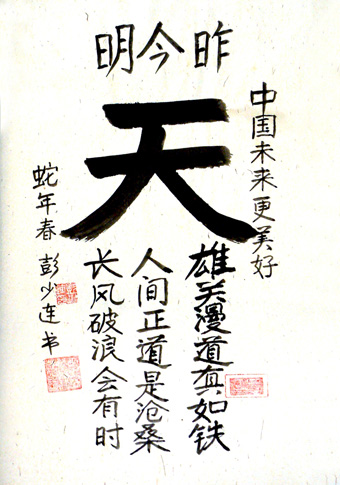 中国未来更美好
昨今明
天
雄关漫道真如铁
人间正道是沧桑
长风破浪会有时
蛇年春 彭少连书